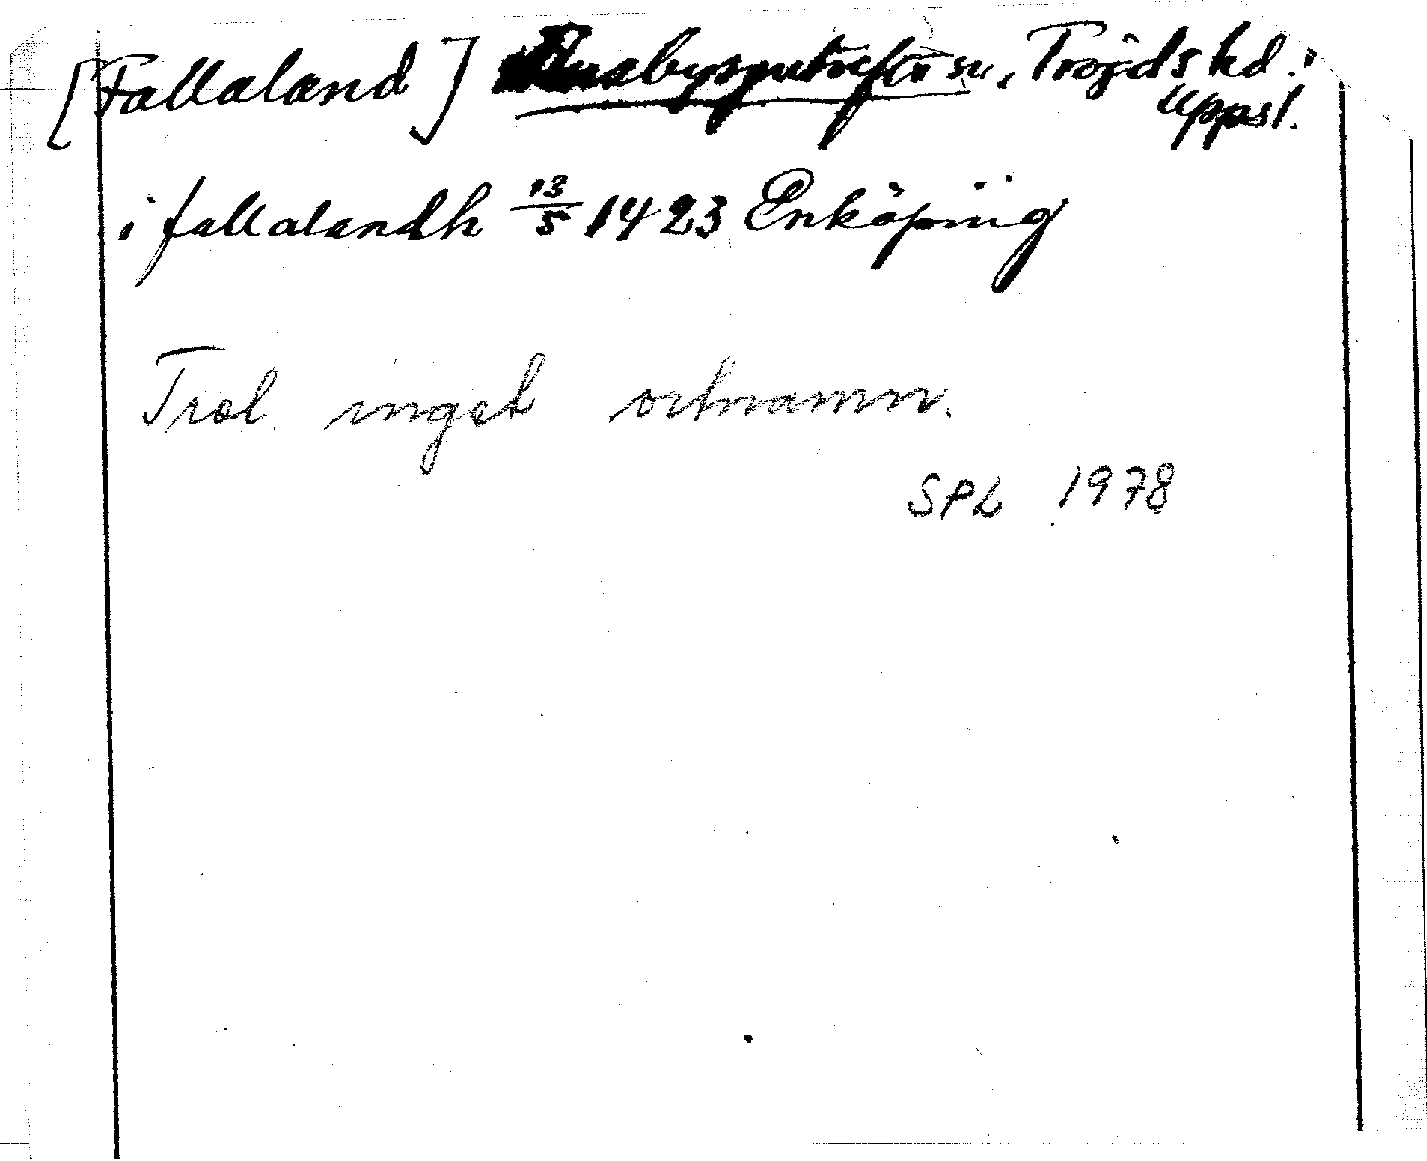 [Fallaland] Husby-Sjutolfts sn, Trögds hd.
Uppsl.
i fallalandh 13/5 1423 Enköping
Trol. inget ortnamn.
SPL 1978